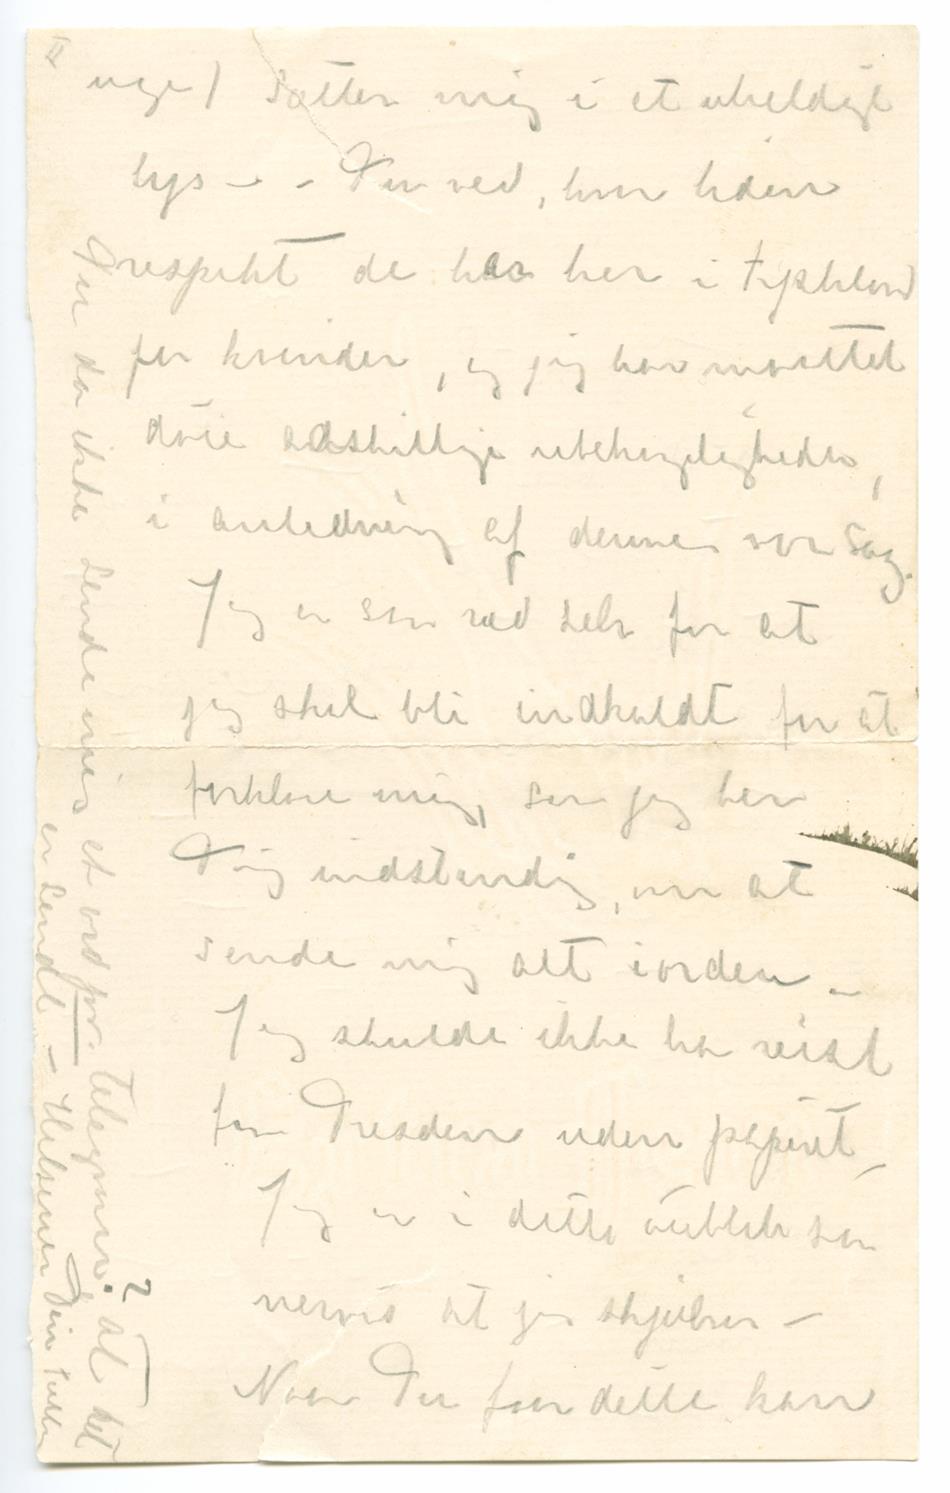 uge) sætter mig i et uheldigt
lys – – Du ved, hvor liden
respekt de har her i tyskland
for kvinder, og jeg har maattet
döie adskillige ubehageligheder,
i anledning af denne vor sag.
Jeg er saa ræd selv for at
jeg skal bli indkaldt for at
forklare mig, saa jeg ber
Dig indstændig, om at
sende mig alt iorden –
Jeg skulde ikke ha reist
fra Dresden uden papiret –
Jeg er i dette öieblik saa
nervös at jeg skjælver –
Naar Du faar dette kan
Du da ikke sende mig et ord pr. telegram? at det
er sendt – Hilsener Din Tulla